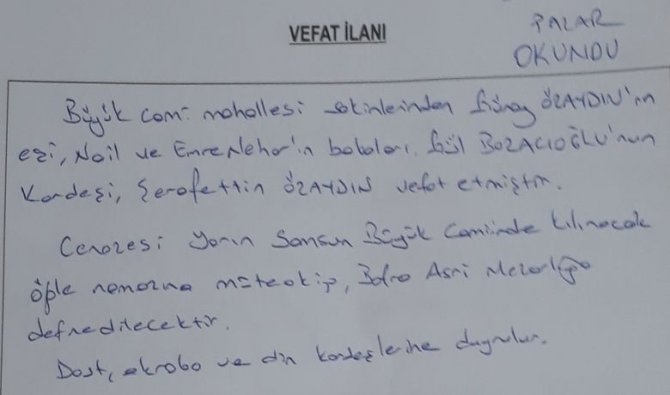 VEFAT İLANI
PALAR
OKUNDU
Büyük cami mahallesi sakinlerinden Günay ÖZAYDIN'ın
eşi, Nail ve Emre Neha'ın babaları, Gül BOZACIOĞLU'nun
Kardeşi, Şerafettin ÖZAYDIN vefat etmiştir.
Cenazesi Yarın Samsun Büyük Camiinde kılınacak
öğle namazına müteakip, Bafra Asri Mezarlığa
defnedilecektir.
Dost, akraba ve din kardeşlerine duyrulur.